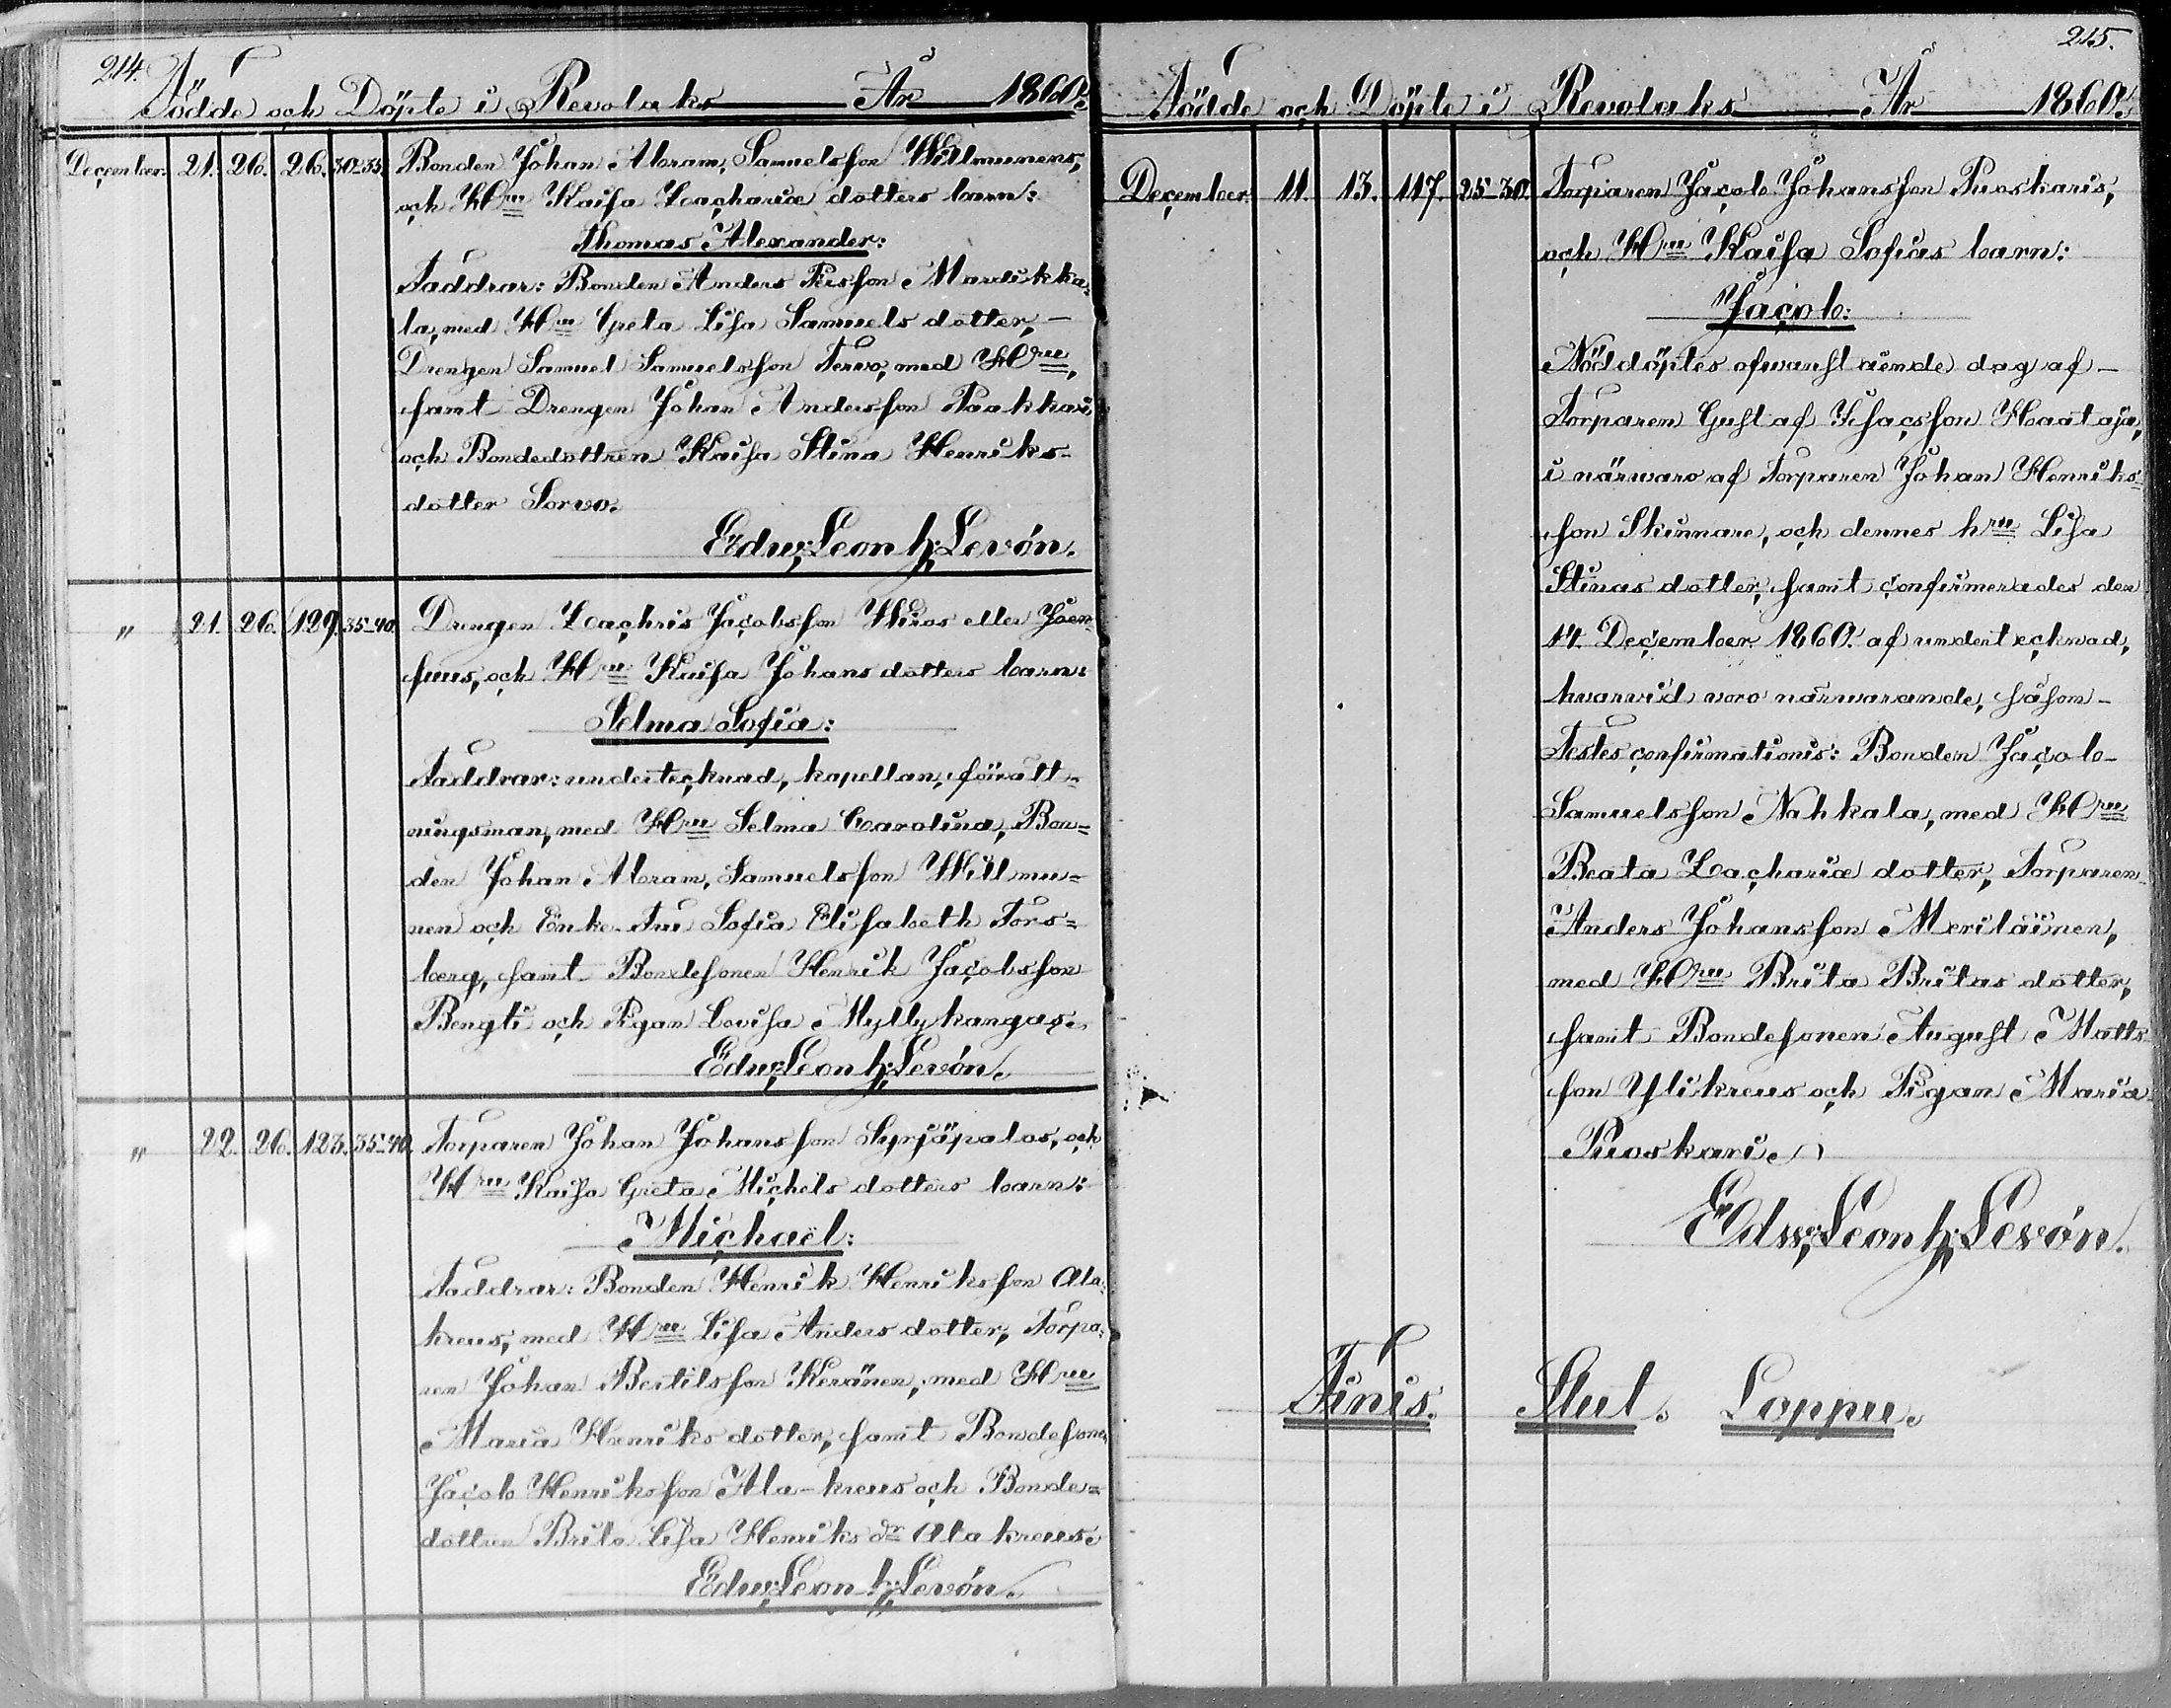 214.
Födde och Döpte i Revolaks År 1860.
December. 21. 26. 26. 30-35. Bonden Johan Abram Samuelsson Willmunens,
och Hru Kaisa Zachariæ dotters barn:
Thomas Alexander:
Faddrar: Bonden Anders Persson Mardikka=
la, med Hru Greta Lisa Samuels dotter, -
Drengen Samuel Samuelsson Terwo, med Hru,
samt Drengen Johan Andersson Paakkari
och Bondedottren Kaisa Stina Henriks-
dotter Sorvo.
Edw; Leonh; Levón.
" 21. 26. 129. 35-40. Drengen Zachris Jacobsson Wiros eller Joen=
suus, och Hru Kaisa Johans dotters barn:
Selma Sofia:
Faddrar: undertecknad, kapellan, förrätt=
ningsman, med Hru Selma Carolina, Bon=
den Johan Abram Samuelsson Willmu=
nen och Enke-Fru Sofia Elisabeth Fors=
berg, samt Bondesonen Henrik Jacobsson
Bengti och Pigan Lovisa Myllykangas.
Edw; Leonh; Levón.
" 22. 26. 123. 35-40. Torparen Johan Johansson Syrjäpalos, och
Hru Kaisa Greta Michels dotters barn:
Michaël:
Faddrar: Bonden Henrik Henriksson Ala=
kreus, med Hru Lisa Anders dotter, Torpa=
ren Johan Bertilsson Keränen, med Hru
Maria Henriks dotter, samt Bondesonen
Jacob Henriksson Ala-kreus och Bonde=
dottren Brita Lisa Henriks dr Ala kreus.
Edw; Leonh; Levón.
215.
Födde och Döpte i Revolaks År 1860.
December. 11. 13. 117. 25-30. Torparen Jacob Johansson Puoskaris,
och Hru Kaisa Sofias barn:
Jacob:
Nöddöptes ofwanstående dag af -
Torparen Gustaf Isacsson Haataja,
i närwaro af Torparen Johan Henriks=
son Skinnare, och dennes hru Lisa
Stinas dotter, samt confirmerades den
14 December 1860. af undertecknad,
hwarvid voro närwarande, såsom -
Testes confirmationis: Bonden Jacob
Samuelsson Nahkala, med Hru
Beata Zachariæ dotter, Torparen
Anders Johansson Meriläinen,
med Hru Brita Britas dotter,
samt Bondesonen August Matts
son Ylikreus och Pigan Maria
Puoskari.
Edw; Leonh; Levón.
Finis. Slut. Loppu.